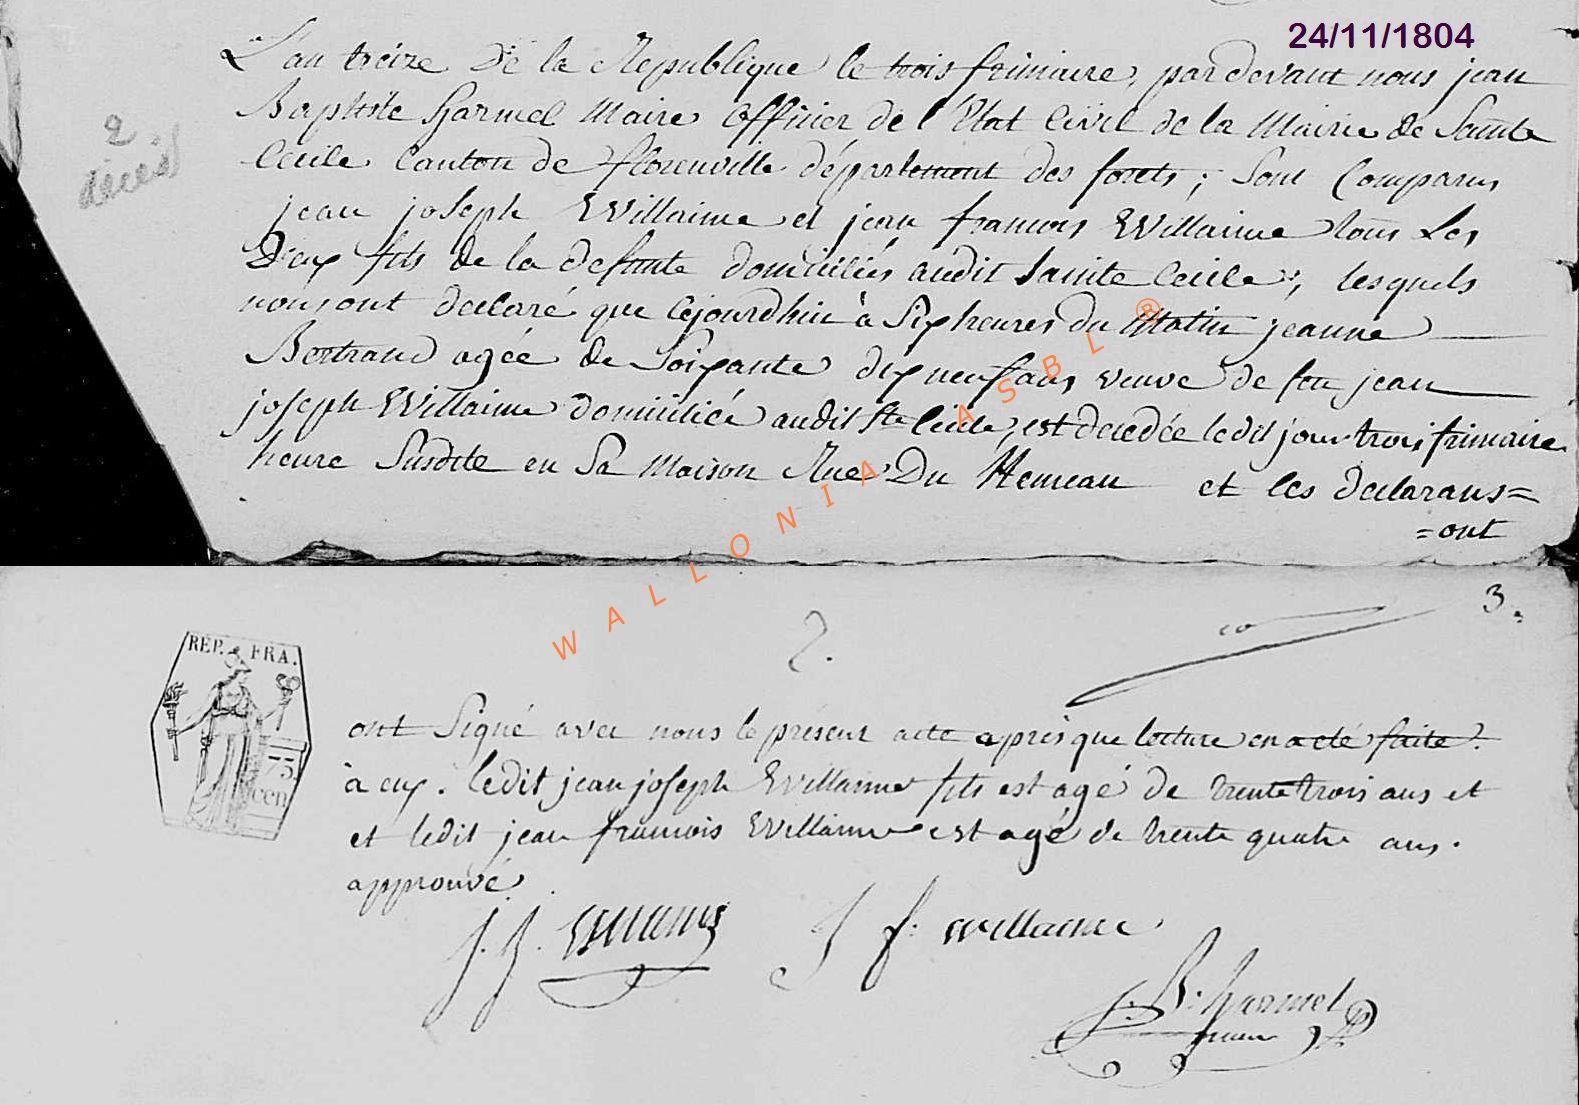 24/11/1804
L'an treize De la Republique le trois frimaire, pardevant nous jean
Baptiste harmel Maire Officier de l'Etat Civil de la Mairie de Sainte
Cécile Canton de florenville département des forets; Sont Comparus
2
décès
jean joseph Willaime et jean francois Willaime tous Les
Deux fils de la defunte domiciliés audit Sainte Cecile, lesquels
nous ont declaré que cejourdhui à Six heures du Matin jeanne
Bertrand agée de Soixante dix neuf ans veuve de feu jean
joseph Willaime domiciliée audit Ste Cecile, est decedée ledit jour trois frimaire
heure Susdite en Sa Maison Rue Du Hemeau et les declarans=
=ont
WALLONIA ASBL ®
3.
2.
REP. FRA.
75
cen
ont Signé avec nous le présent acte après que lecture en a eté faite
à eux. ledit jean joseph Willaime fils est agé de trente trois ans et
et ledit jean francois Willaime est agé de trente quatre ans.
approuvé
j. j. Willaime J f: Willaime
J. B: harmel
maire